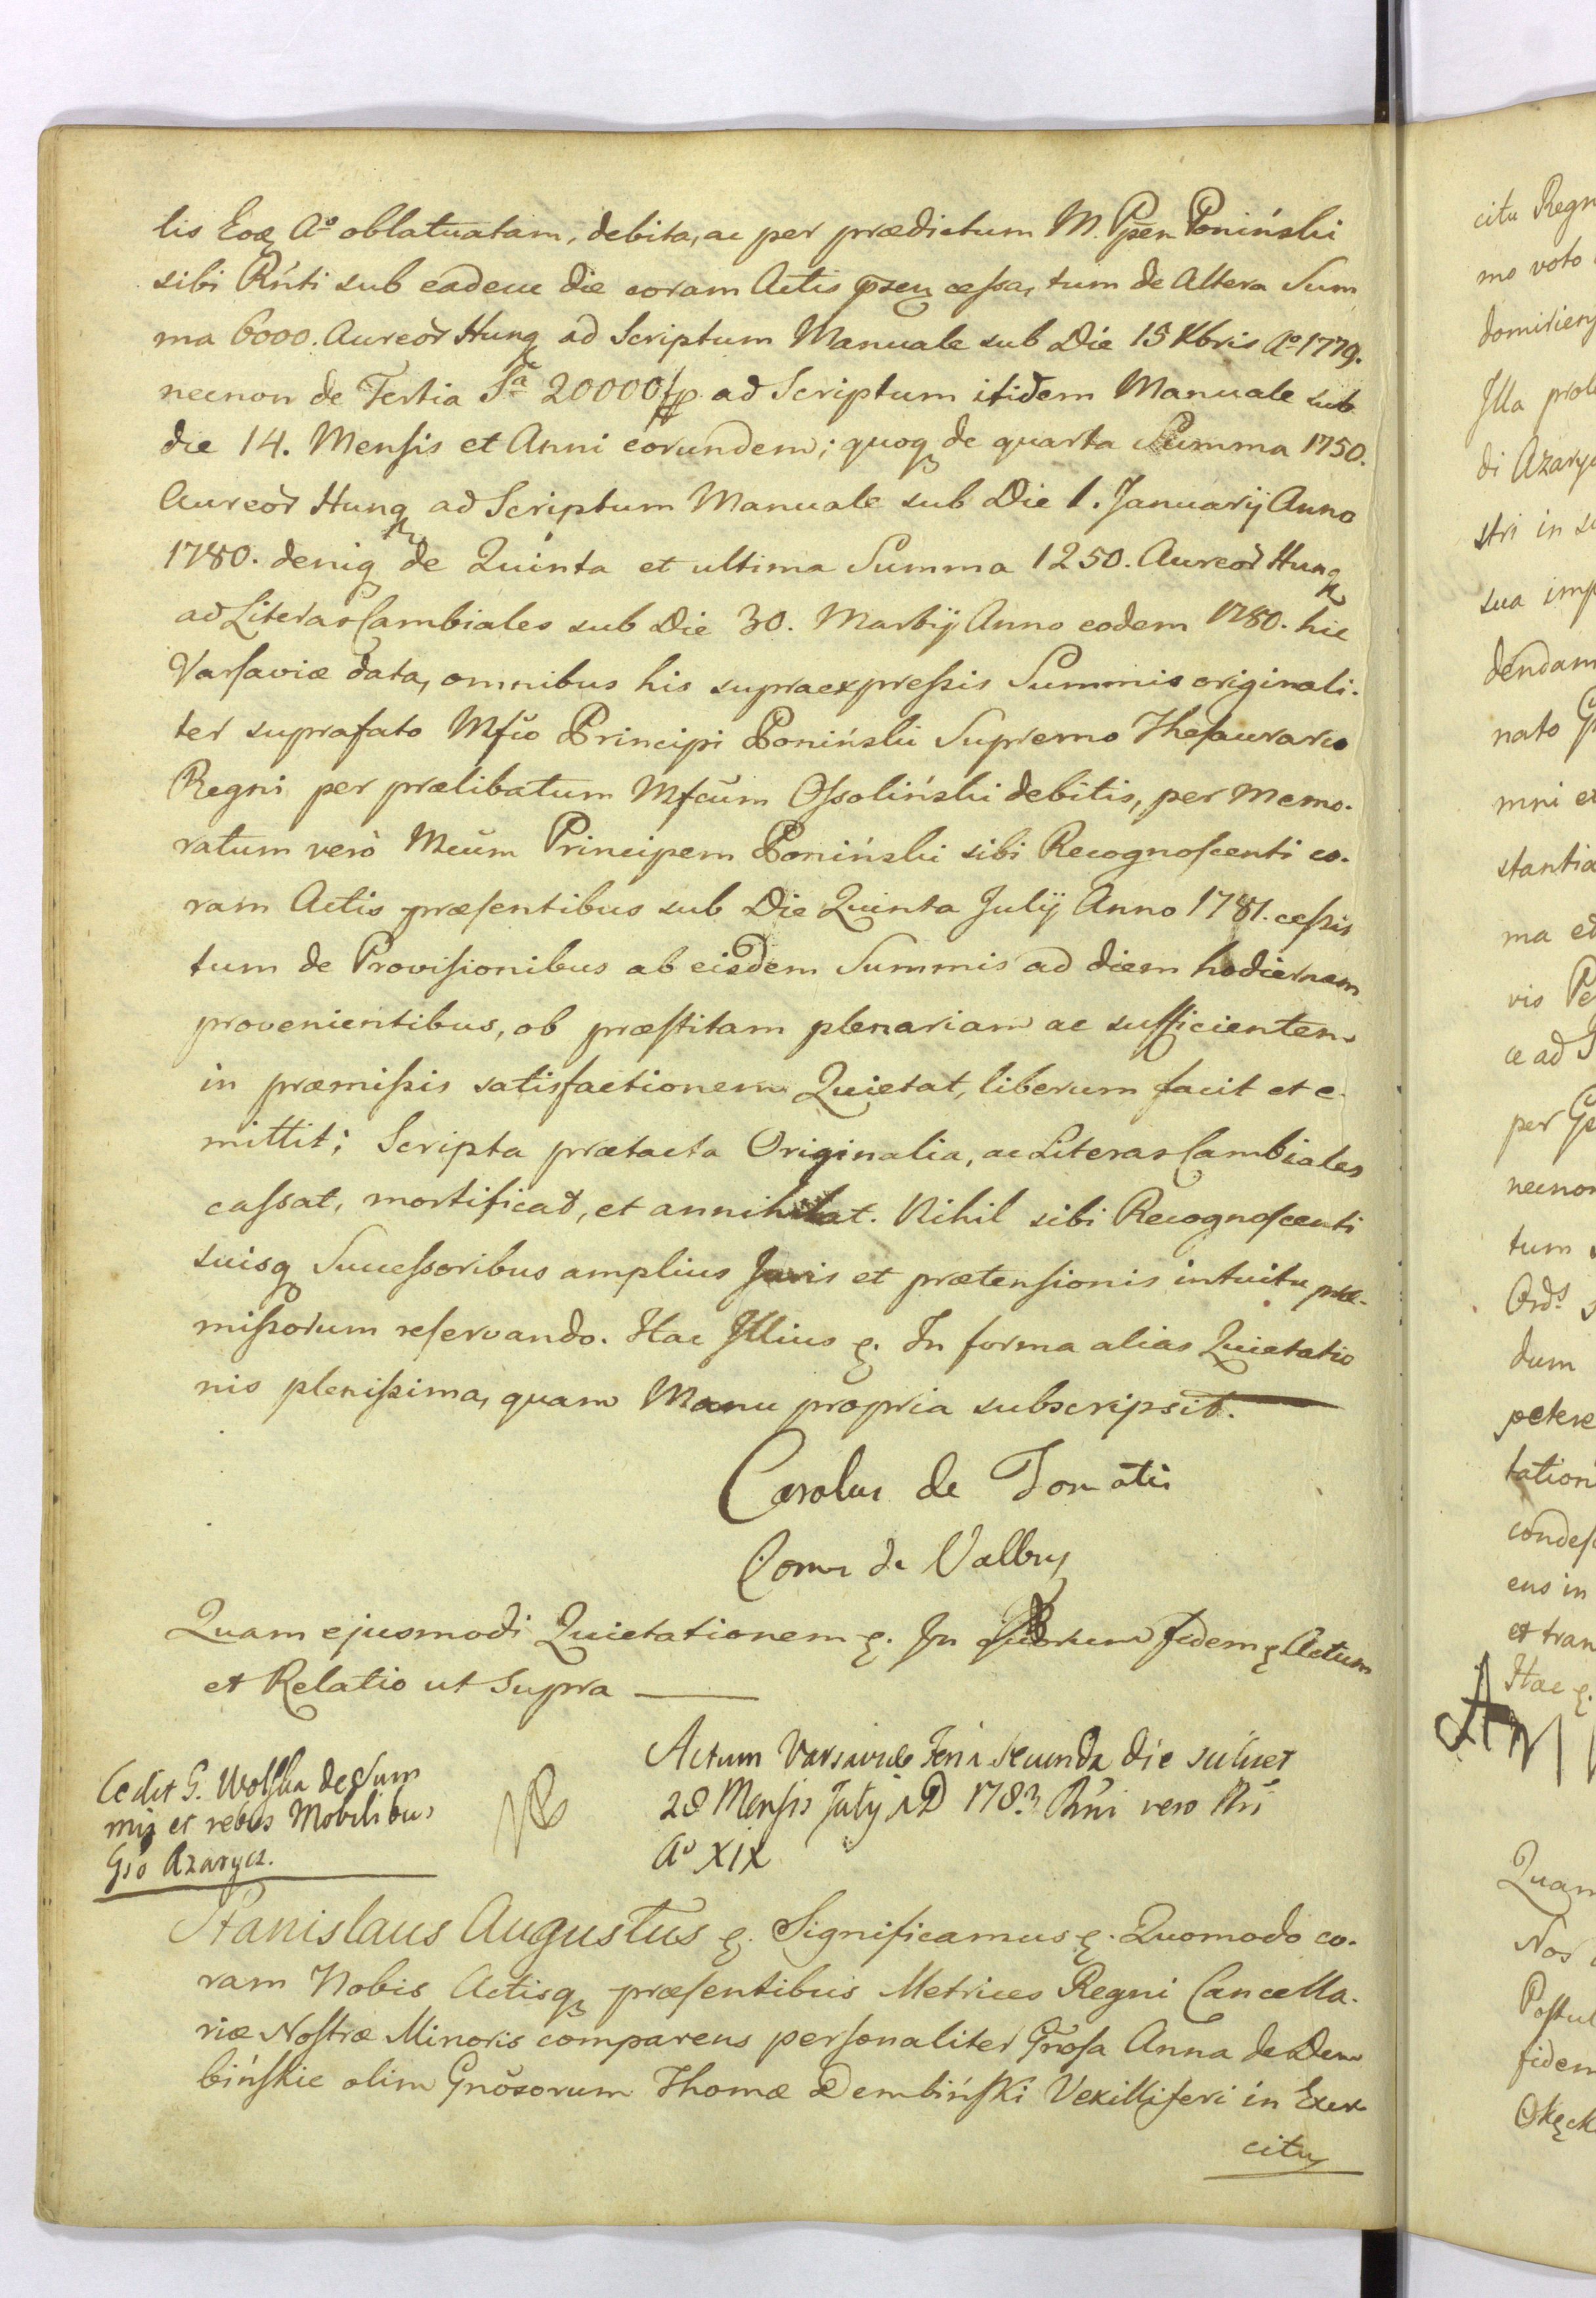 lis Eoq Aº oblatuatam, debita, ac per prædictum M. Ppen Poniński
sibi Rńti sub eadem die coram Actis pzeq cessa, tum de Altera Sum
ma 6000. Aureor Hung ad Scriptum Manuale sub Die 15 Xbris Aº 1779.
necnon de Tertia Sa 20000 fp. ad Scriptum itidem Manuale sub
die 14. Mensis et Anni eorundem; quoq de quarta Summa 1750.
Aureor Hung ad Scriptum Manuale sub Die 1. Januarij Anno
1780. deniq de Quinta et ultima Summa 1250. Aureor Hung
ad Literas Cambiales sub Die 30. Martij Anno eodem 1780. hic
Varsaviæ data, omnibus his supraexpressis Summis originali.
ter suprafato Mfco Principi Poniński Supremo Thesaurario
Regni per prælibatum Mfcum Ossoliński debitis, per memo.
ratum verò Mcum Principem Poniński sibi Recognoscenti co.
ram Actis præsentibus sub Die Quinta Julij Anno 1781. cessis
tum de Provisionibus ab eisdem Summis ad diem hodiernam
provenientibus, ob præstitam plenariam ac sufficientem
in præmissis satisfactionem Quietat, liberum facit et e.
mittit; Scripta prætacta Originalia, ac Literas Cambiales
cassat, mortificat, et annihilat. Nihil sibi Recognoscenti
suisq Successoribus amplius Juris et prætensionis intuitu præ-
missorum reservando. Hac Illius ę. In forma alias Quietatio
nis plenissima, quam Manu propria subscripsit.
Carolus de Tomatis
Comes de Valbry
Quam ejusmodi Quietationem ę. In quorum fidem ę Actum
et Relatio ut Supra
Cedit G. Wolska de Sum
mis et rebus Mobilibus
Gso Azarycz.
Actum Varsaviæ Feria Secunda die scilicet
28 Mensis July AD 1783 Rńi vero Nri
Aº XIX
Stanislaus Augustus ę. Significamus ę. Quomodo co.
ram Nobis Actisq præsentibus Metrices Regni Cancella.
riæ Nostræ Minoris comparens personaliter Gnosa Anna de Dem
bińskie olim Gnosorum Thomæ Dembiński Vexilliferi in Exer
citu
citu Regn
mo voto
domicien
Illa prol
di Azaryc
stri in su
sua imp
dendam
nato G
mni et
stantia
ma et
vis Pe
ce ad
per Ge
necnon
tum
Ords
dum
petere
tation
condes
ens in
et tran
Hac ę.
AM
Quam
Nos
Postul
fidem
Okęck